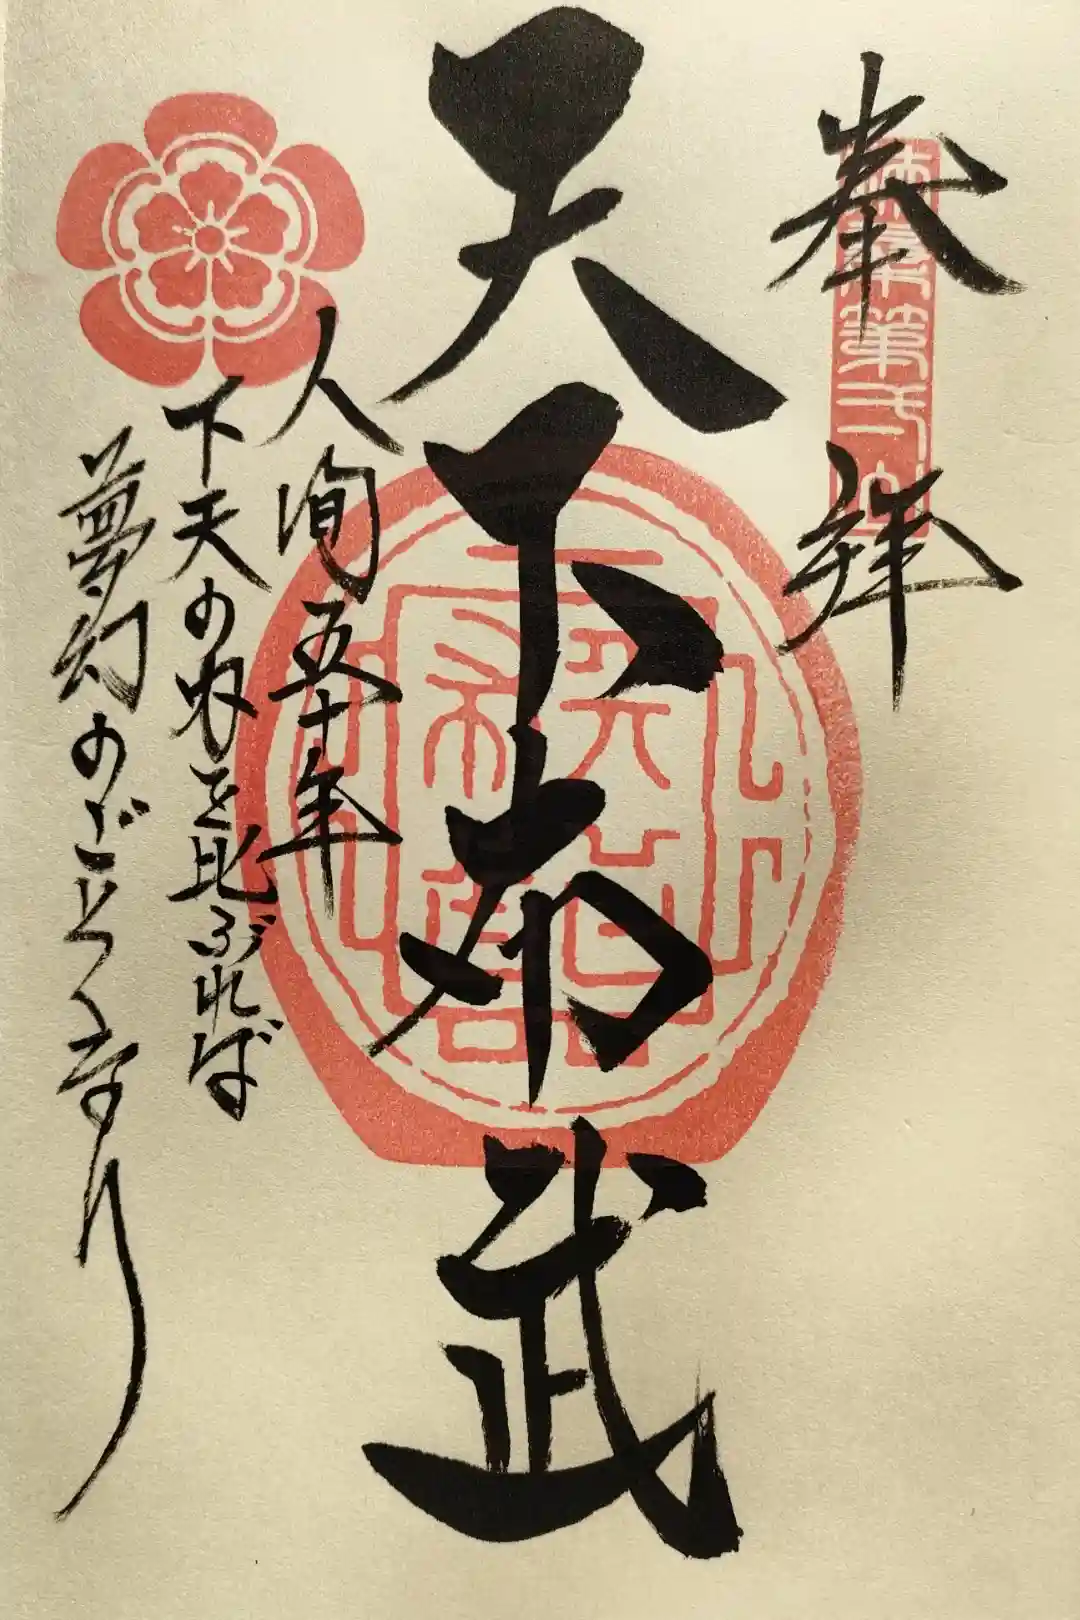 奉拝
天下布武
人间五十年
下天の内を比ぶれば
夢幻のごとくなり